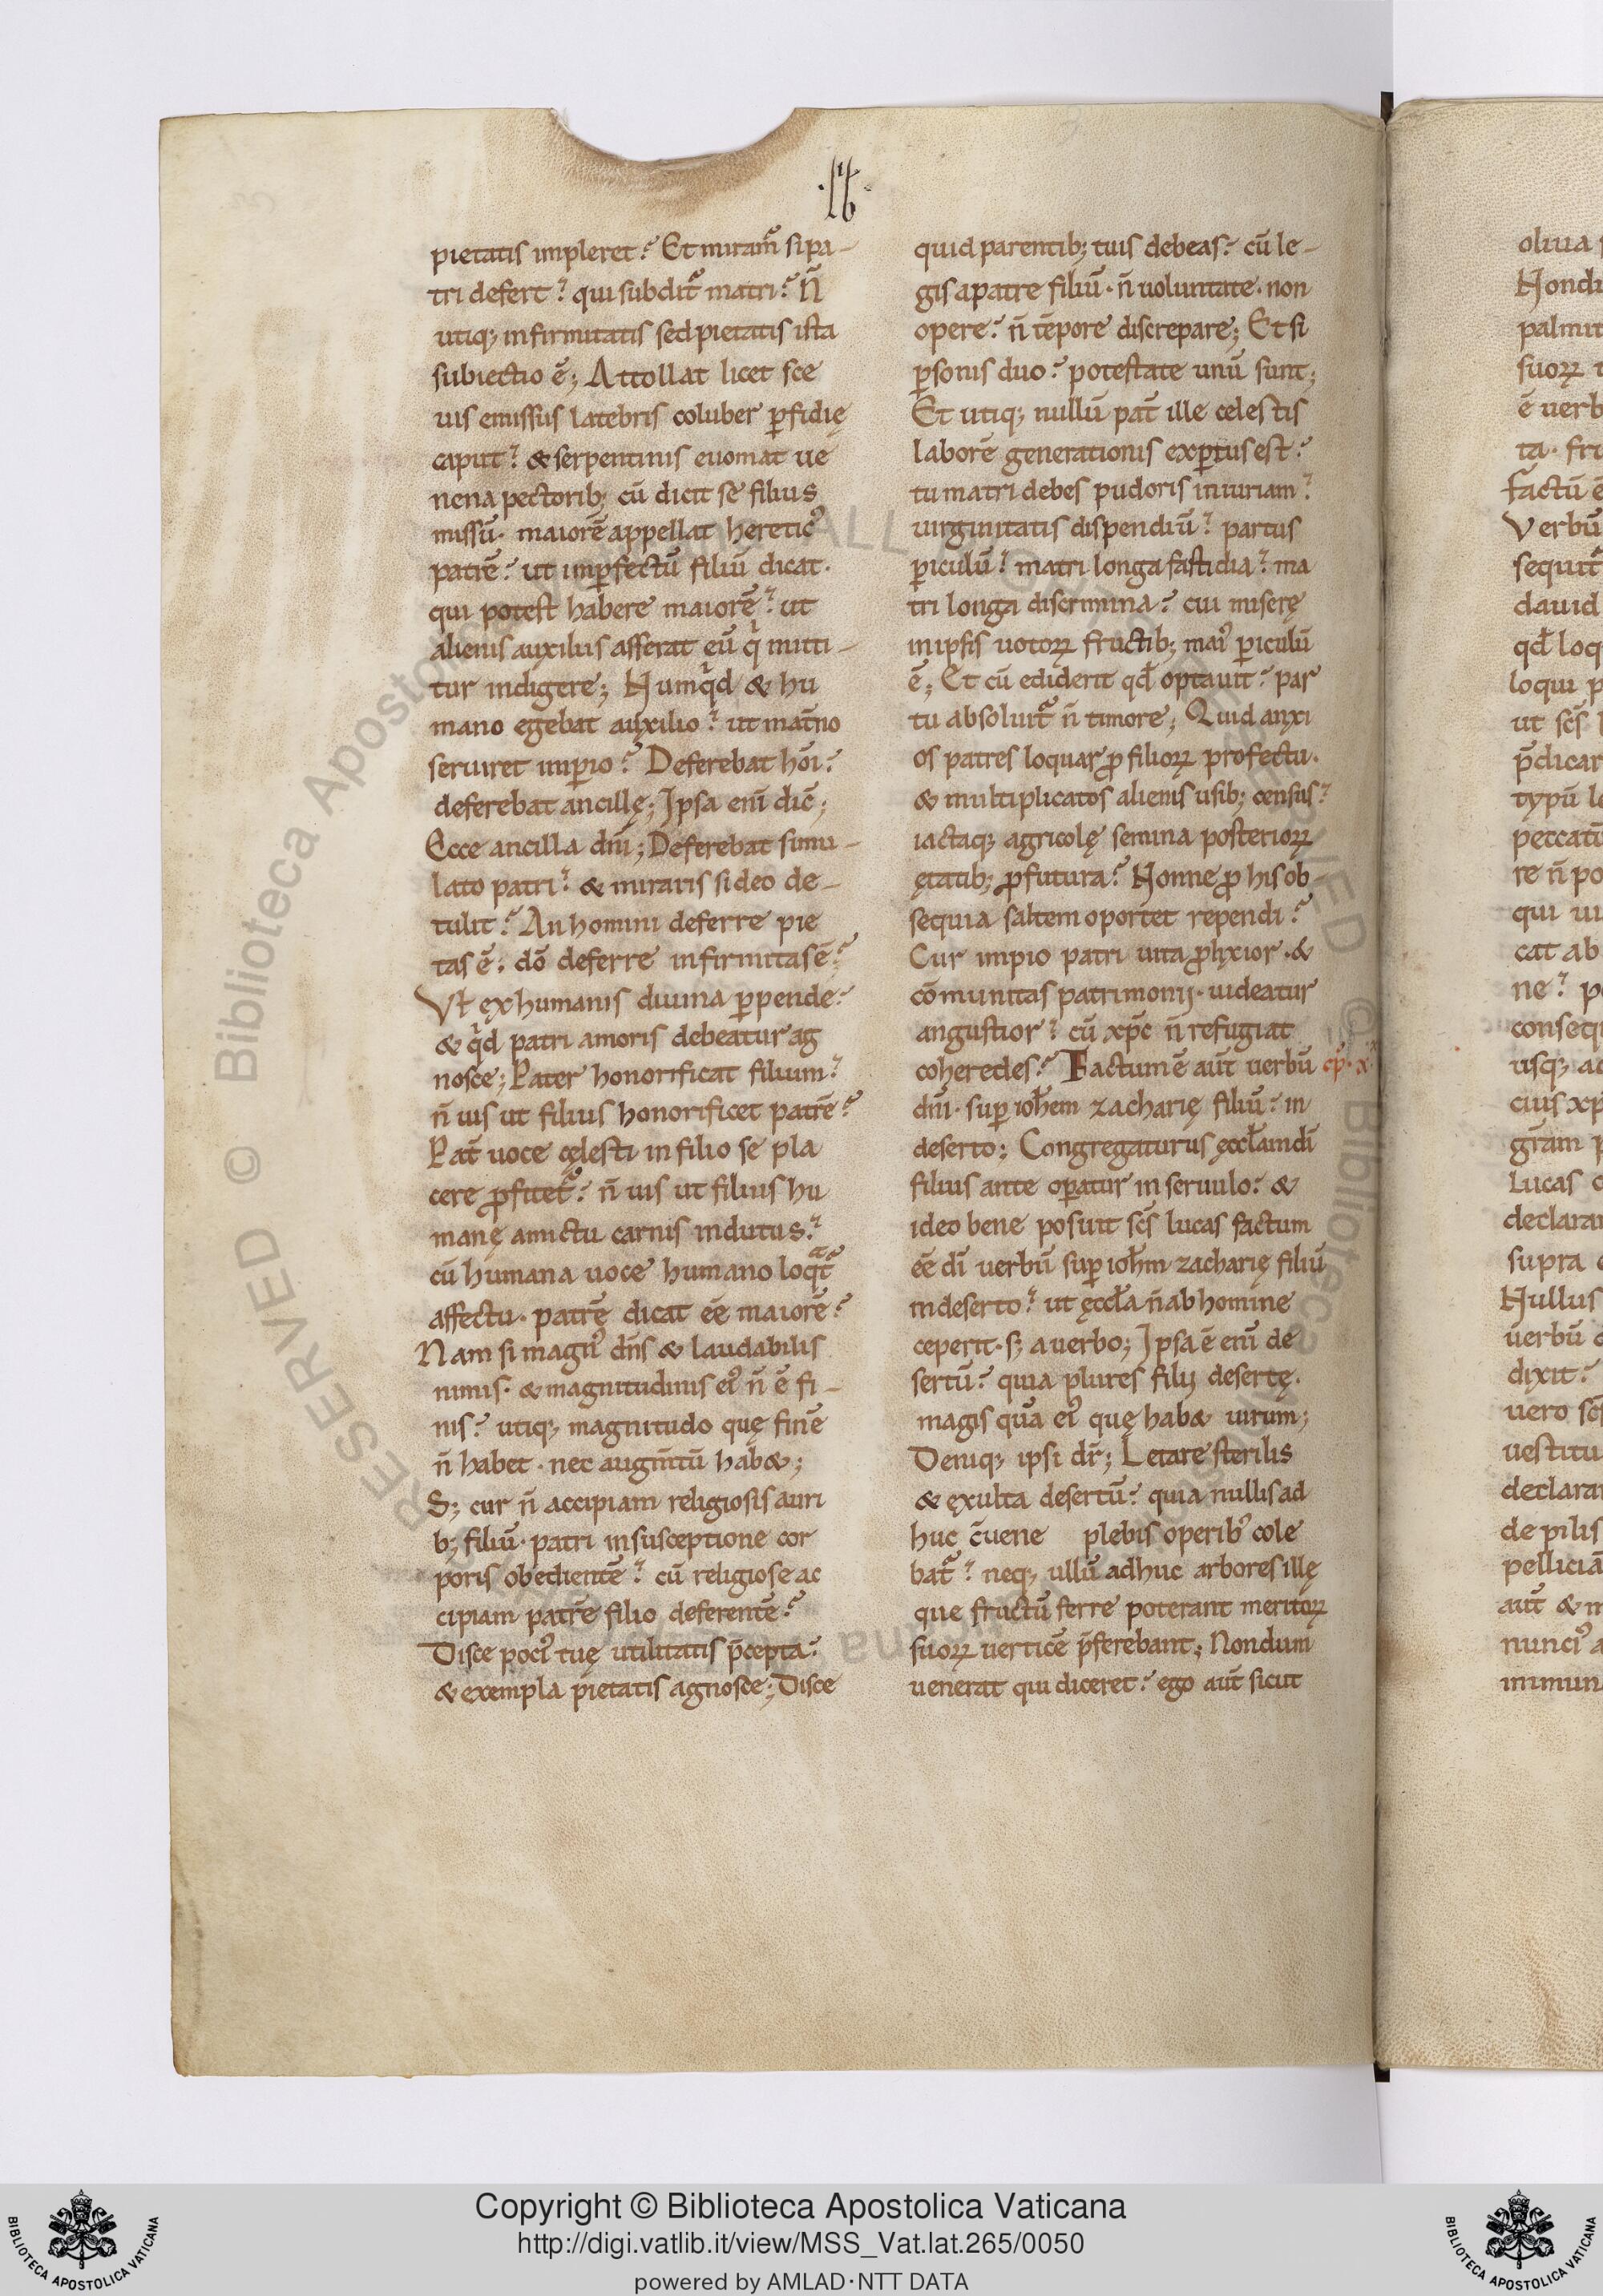 pietatis impleret? Et miram̃ si pa-
tri defert? qui subdit̃ matri? ñ
utiq; infirmitatis sed pietatis ista
subiectio ē; Attollat licet sce
uis emissus latebris coluber ꝑfidię
caput? & serpentinis euomat ue
nena pectorib; cū dicit se filius
missū· maiorē appellat heretic᾽
patrē? ut imꝑfectū filiū dicat·
qui potest habere maiorē? ut
alienis auxiliis asserat eū q̇ mitti-
tur indigere; Numq̇d & hu
mano egebat auxilio? ut mat̃no
seruiret imꝑio? Deferebat hōi?
deferebat ancillę; Ipsa enī dic̄;
Ecce ancilla dñi; Deferebat simu-
lato patri? & miraris si deo de-
tulit? An homini deferre pie
tas ē; dō deferre infirmitas ē?
Vł ex humanis diuina ꝑpende?
& q̇d patri amoris debeatur ag
nosce; Pater honorificat filium?
ñ uis ut filius honorificet patrē?
Pat̃ uoce cęlesti in filio se pla
cere ꝓfitet̃? ñ uis ut filius hu
manę amictu carnis indutus?
cū humana uoce humano loqᵃt̃
affectu· patrē dicat eē maiorē?
Nam si magn᾽ dñs & laudabilis
nimis· & magnitudinis ei᾽ ñ ē fi-
nis? utiq; magnitudo quę finē
ñ habet· nec augm̄tū hab&;
S; cur ñ accipiam religiosis auri
b; filiū· patri in susceptione cor
poris obedientē? cū religiose ac
cipiam patrē filio deferentē?
Disce poci᾽ tuę utilitatis p̄cepta?
& exempla pietatis agnosce; Disce
quid parentib; tuis debeas? cū le-
gis a patre filiū· ñ uoluntate· non
opere? ñ tēpore discrepare; Et si
ꝑsonis duo? potestate unū sunt;
Et utiq; nullū pat̃ ille celestis
laborē generationis exꝑtus est?
tu matri debes pudoris iniuriam?
uirginitatis dispendiū? partus
ꝑiculū? matri longa fastidia? ma
tri longa discrimina? cui miserę
in ipsis uotoꝝ fructib; mai᾽ ꝑiculū
ē; Et cū ediderit qđ optauit? par
tu absoluit̃ ñ timore; Quid anxi
os patres loquar ꝓ filioꝝ profectu·
& multiplicatos alienis usib; census?
iactaq; agricolę semina posterioꝝ
ętatib; ꝓfutura? Nonne ꝓ his ob-
sequia saltem oportet rependi?
Cur impio patri uita ꝓlixior· &
cōmunitas patrimonij· uideatur
angustior? cū xp̄c ñ refugiat
coheredes? Factum ē aūt uerbū cp̄·x·
dñi· suꝑ ioħem zacharię filiū? in
deserto; Congregaturus ęccłam dī
filius ante oꝑatur in seruulo? &
ideo bene posuit sc̄s lucas factum
eē dī uerbū suꝑ ioħm zacharię filiū
in deserto? ut ęccła ñ ab homine
ceperit· s; a uerbo; Ipsa ē enī de
sertū? quia plures filij desertę·
magis quā ei᾽ quę hab& uirum;
Deniq; ipsi dr̄; Letare sterilis
& exulta desertū? quia nullis ad
huc c̄uene plebis operib᾽ cole
bat̃? neq; ullū adhuc arbores illę
que fructū ferre poterant meritoꝝ
suoꝝ uerticē p̄ferebant; Nondum
uenerat qui diceret? ego aūt sicut
oliua
Nond
palmit
suoꝝ
ē uerb
ta· fru
factū ē
Verbū
sequit̃
dauid
qđ loq
loqui p
ut sc̄s
p̄dicar
typū
peccatū
re ñ po
qui ui
cat ab
ne? p
conseq
usq; ad
cius xp
gr̄am p
Lucas
declara
supra
Nullus
uerbū
dixit?
uero sc̄s
uestitu
declara
de pilis
pelliciā
aūt & m
nunci᾽ a
immun
RESERVED © Biblioteca Apostolica
Copyright © Biblioteca Apostolica Vaticana
http://digi.vatlib.it/view/MSS_Vat.lat.265/0050
powered by AMLAD·NTT DATA
BIBLIOTECA APOSTOLICA VATICANA
BIBLIOTECA APOSTOLICA VATICANA